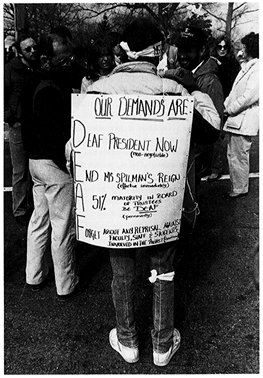 OUR DEMANDS ARE:
DEAF PRESIDENT NOW
(non-negotiable)
END MS SPILMAN'S REIGN
(effective immediately)
51% MAJORITY IN BOARD
OF TRUSTEES
BE DEAF
(permanently)
FORGET ABOUT ANY REPRISAL AGAINST
FACULTY, STAFF & STUDENTS
INVOLVED IN THE PROTEST